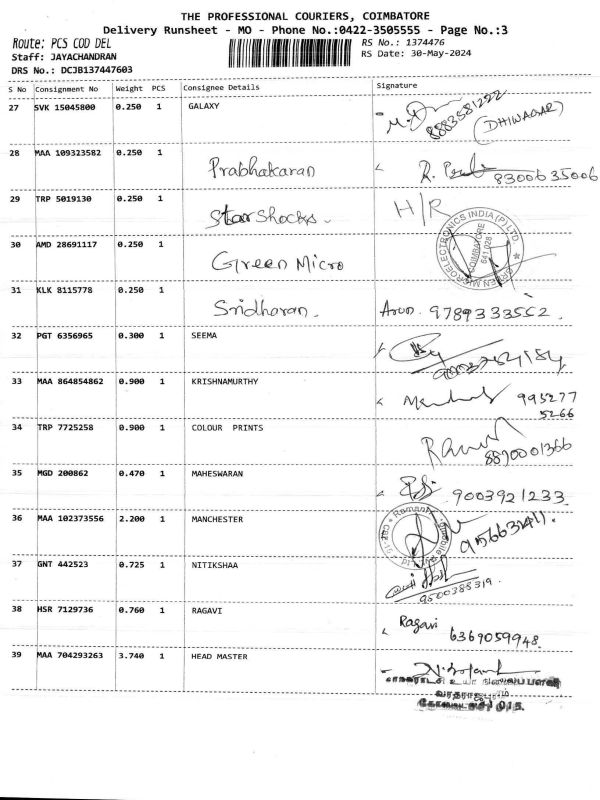 THE PROFESSIONAL COURIERS, COIMBATORE
Delivery Runsheet - MO - Phone No.:0422-3505555 - Page No.:3
Route: PCS COD DEL
RS No.: 1374476
Staff: JAYACHANDRAN
RS Date: 30-May-2024
DRS No.: DCJB137447603
S No Consignment No Weight PCS Consignee Details Signature
27 SVK 15045800 0.250 1 GALAXY
8883581222
(DHINAGAR)
28 MAA 109323582 0.250 1 Prabhakaran R. 8300635006
29 TRP 5019130 0.250 1 Star Shocks. H/R
30 AMD 28691117 0.250 1 Green Micro
GREEN MICROELECTRONICS INDIA (P) LTD
COIMBATORE
641 028
31 KLK 8115778 0.250 1 Sridharan. Arun. 9789333552.
32 PGT 6356965 0.300 1 SEEMA
33 MAA 864854862 0.900 1 KRISHNAMURTHY 995277
5266
34 TRP 7725258 0.900 1 COLOUR PRINTS
8870001366
35 MGD 200862 0.470 1 MAHESWARAN 9003921233.
36 MAA 102373556 2.200 1 MANCHESTER
37 GNT 442523 0.725 1 NITIKSHAA
9500385319.
38 HSR 7129736 0.760 1 RAGAVI Ragavi
6369059948.
39 MAA 704293263 3.740 1 HEAD MASTER